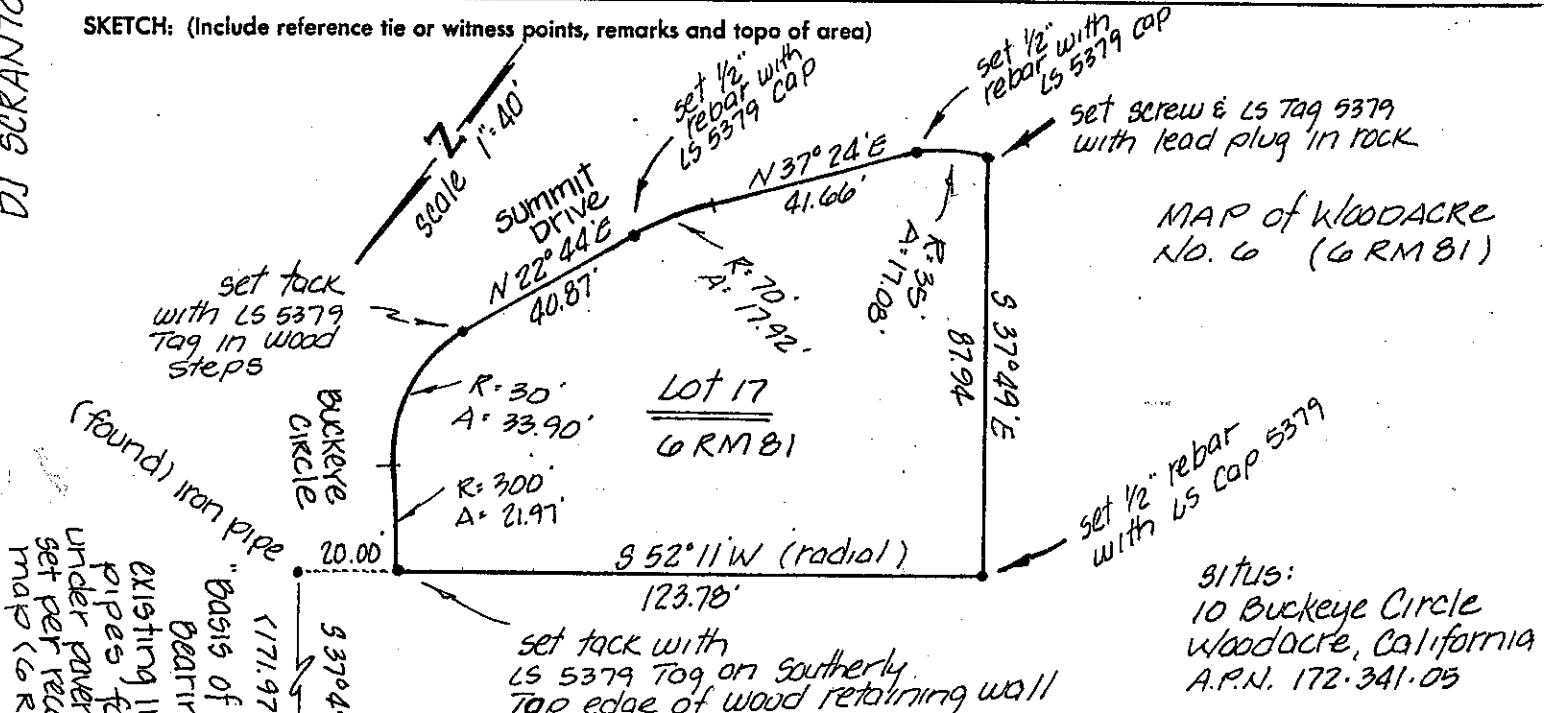 DJ SCRANTO
SKETCH: (Include reference tie or witness points, remarks and topo of area)
Z
scale 1"=40'
set 1/2"
rebar with
LS 5379 cap
set 1/2"
rebar with
LS 5379 cap
set screw & LS Tag 5379
with lead plug in rock
MAP of WOODACRE
NO. 6 (6 RM 81)
SUMMIT
DRIVE
N 22° 44' E
40.87'
N 37° 24' E
41.66'
R=70'
A= 17.92'
R=35'
A=17.08'
S 37° 49' E
87.94
set tack
with LS 5379
Tag in wood
steps
BUCKEYE
CIRCLE
R=30'
A= 33.90'
LOT 17
6 RM 81
R=300'
A= 21.97'
(found) iron pipe
20.00'
S 52° 11' W (radial)
123.78'
set 1/2" rebar
with LS cap 5379
set tack with
LS 5379 Tag on Southerly
Top edge of wood retaining wall
situs:
10 Buckeye Circle
Woodacre, California
A.P.N. 172-341-05
S 37° 4
(171.97
"Basis of
Bearin
existing i
pipes f
under paver
set per rec
map (6 R